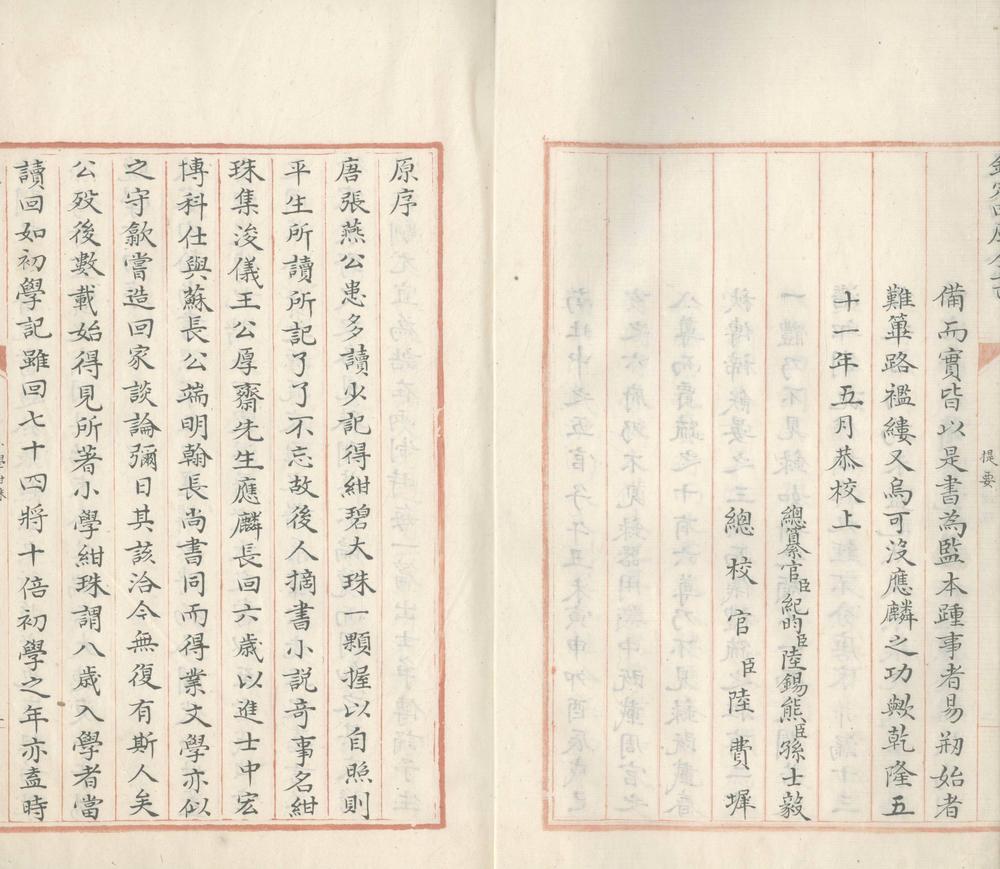 提要
備而實皆以是書為監本踵事者易剏始者
難篳路襤縷又烏可沒應麟之功歟乾隆五
十一年五月恭校上
總纂官臣紀昀臣陸錫熊臣孫士毅
總校官臣陸費墀
原序
唐張燕公患多讀少記得紺碧大珠一顆握以自照則
平生所讀所記了了不忘故後人摘書小説竒事名紺
珠集浚儀王公厚齋先生應麟長回六歳以進士中宏
博科仕與蘇長公端明翰長尚書同而得業文學亦似
之守歙嘗造回家談論彌日其該洽今無復有斯人矣
公歿後數載始得見所著小學紺珠謂八歳入學者當
讀回如初學記雖回七十四將十倍初學之年亦盍時